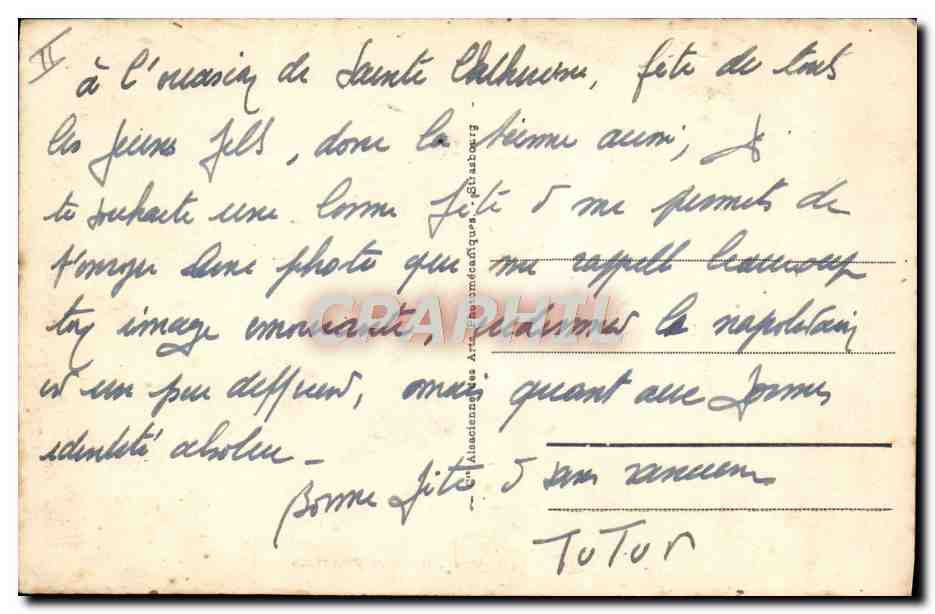 II
à l'occasion de Sainte Catherine, fête de tous
les jeunes filles, donc la tienne aussi, je
te souhaite une bonne fête & me permets de
t'envoyer une photo qui me rappelle beaucoup
ton image émouvante, évidemment le napolitain
est un peu différent, mais quant aux formes
identité absolue -
Bonne fête & sans rancune
TUTUR
Cie Alsacienne des Arts Photomécaniques - Strasbourg
CRAPHIL